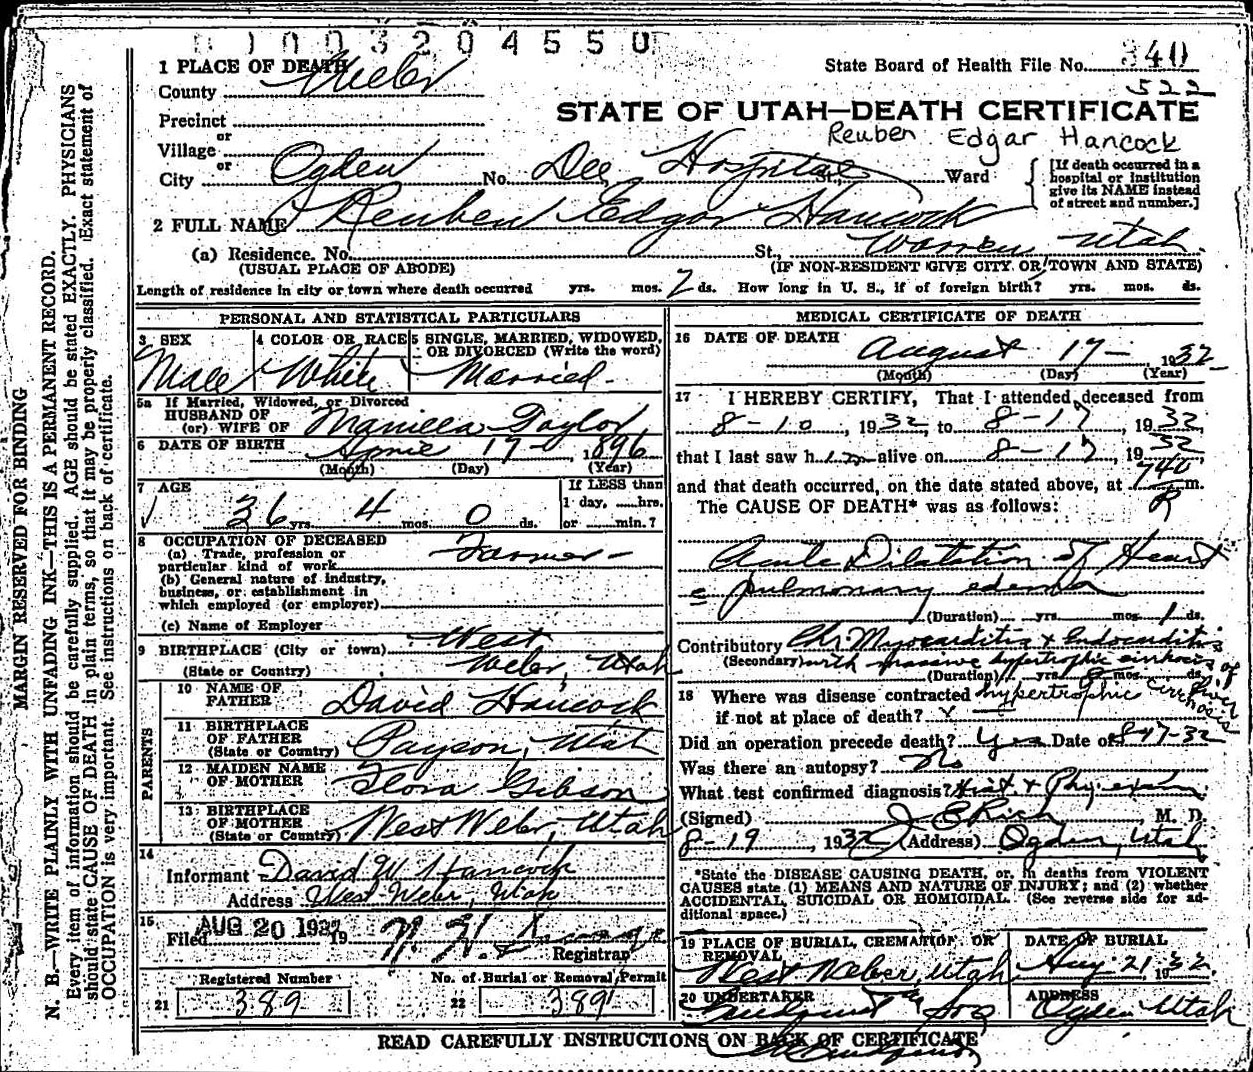 01003204550
1 PLACE OF DEATH
County Weber
State Board of Health File No. 340
522
Precinct
or
Village
or
STATE OF UTAH—DEATH CERTIFICATE
Reuben Edgar Hancock
City Ogden No. Dee Hospital St., Ward
[If death occurred in a
hospital or institution
give its NAME instead
of street and number.]
2 FULL NAME Reuben Edgar Hancock
(a) Residence. No. St., Warren Utah.
(USUAL PLACE OF ABODE) (IF NON-RESIDENT GIVE CITY OR TOWN AND STATE)
Length of residence in city or town where death occurred yrs. mos. 7 ds. How long in U. S., if of foreign birth? yrs. mos. ds.
PERSONAL AND STATISTICAL PARTICULARS
3 SEX 4 COLOR OR RACE 5 SINGLE, MARRIED, WIDOWED,
OR DIVORCED (Write the word)
Male White Married
5a If Married, Widowed, or Divorced
HUSBAND OF
(or) WIFE OF Manilla Taylor
6 DATE OF BIRTH April 17 - 1896
(Month) (Day) (Year)
7 AGE
36 yrs. 4 mos. 0 ds.
If LESS than
1 day, ....hrs.
or ....min.?
8 OCCUPATION OF DECEASED
(a) Trade, profession or
particular kind of work Farmer -
(b) General nature of industry,
business, or establishment in
which employed (or employer)
(c) Name of Employer
9 BIRTHPLACE (City or town) West
(State or Country) Weber, Utah
PARENTS
10 NAME OF
FATHER David Hancock
11 BIRTHPLACE
OF FATHER
(State or Country) Payson, Utah
12 MAIDEN NAME
OF MOTHER Flora Gibson
13 BIRTHPLACE
OF MOTHER
(State or Country) West Weber, Utah
14
Informant David W. Hancock
Address West Weber, Utah
15
Filed AUG 20 1932 19
Registrar
Registered Number No. of Burial or Removal Permit
21 389 22 389
MEDICAL CERTIFICATE OF DEATH
16 DATE OF DEATH
August 17 - 1932
(Month) (Day) (Year)
17 I HEREBY CERTIFY, That I attended deceased from
8-10, 1932, to 8-17, 1932,
that I last saw him alive on 8-17, 1932,
and that death occurred, on the date stated above, at 740 P m.
The CAUSE OF DEATH* was as follows:
Acute Dilatation of Heart
c pulmonary edema
(Duration) yrs. mos. 1 ds.
Contributory Chr. Myocarditis & Endocarditis
(Secondary) with massive hypertrophic cirrhosis of
Liver
(Duration) yrs. 8 mos. ds.
18 Where was disease contracted hypertrophic cirrhosis
if not at place of death?
Did an operation precede death? Yes Date of 8-17-32
Was there an autopsy? No
What test confirmed diagnosis? Hist. & Phy. exam.
(Signed) J E Rich M. D.
8-19, 1932 (Address) Ogden, Utah
*State the DISEASE CAUSING DEATH, or, in deaths from VIOLENT
CAUSES state (1) MEANS AND NATURE OF INJURY; and (2) whether
ACCIDENTAL, SUICIDAL OR HOMICIDAL. (See reverse side for ad-
ditional space.)
19 PLACE OF BURIAL, CREMATION, OR
REMOVAL
West Weber, Utah
DATE OF BURIAL
Aug. 21 1932.
20 UNDERTAKER ADDRESS
Ogden Utah
READ CAREFULLY INSTRUCTIONS ON BACK OF CERTIFICATE
MARGIN RESERVED FOR BINDING
N. B.—WRITE PLAINLY WITH UNFADING INK—THIS IS A PERMANENT RECORD.
Every item of information should be carefully supplied. AGE should be stated EXACTLY. PHYSICIANS
should state CAUSE OF DEATH in plain terms, so that it may be properly classified. Exact statement of
OCCUPATION is very important. See instructions on back of certificate.